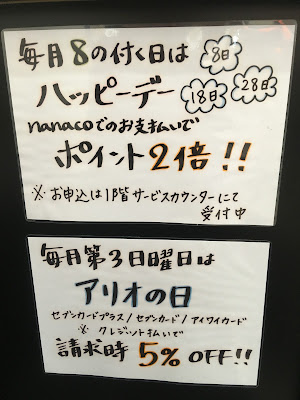 毎月8の付く日は 8日
ハッピーデー 18日 28日
nanacoでのお支払いで
ポイント2倍!!
※お申込は1階サービスカウンターにて
受付中
毎月第3日曜日は
アリオの日
セブンカードプラス/セブンカード/アイワイカード
※クレジット払いで
請求時5%OFF!!